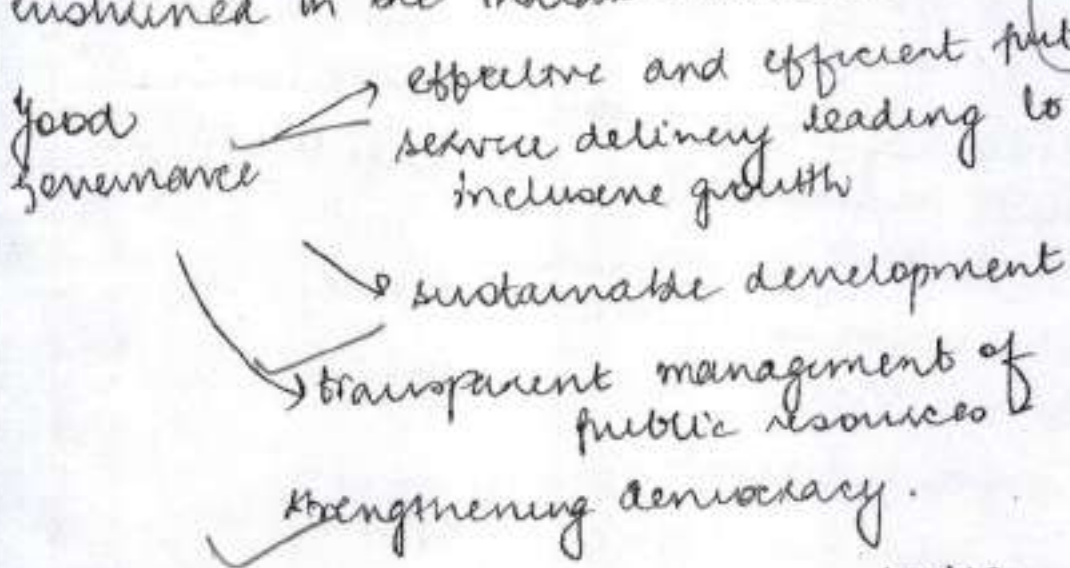 enshrined in the Indian
effective and efficient pub
Good
service delivery leading to
Governance
inclusive growth
sustainable development
transparent management of
public resources
strengthening democracy.